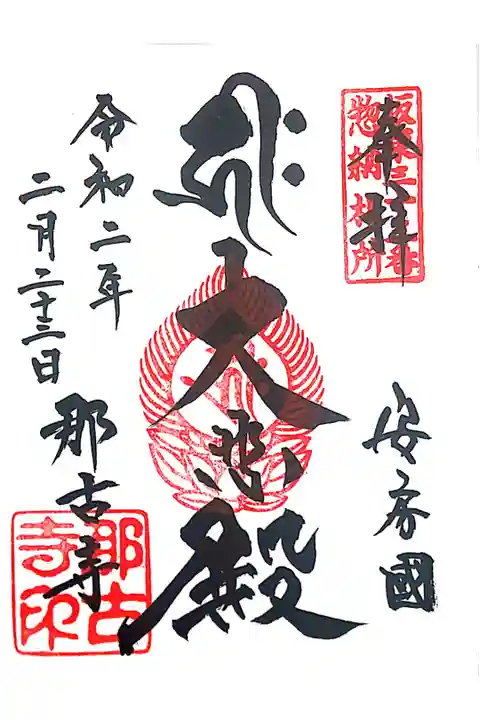 奉拝
坂東三十三番
惣納札所
安房國
𑖮𑖿𑖨𑖱𑖾
大悲殿
令和二年
二月二十三日
那古寺
那古
寺印